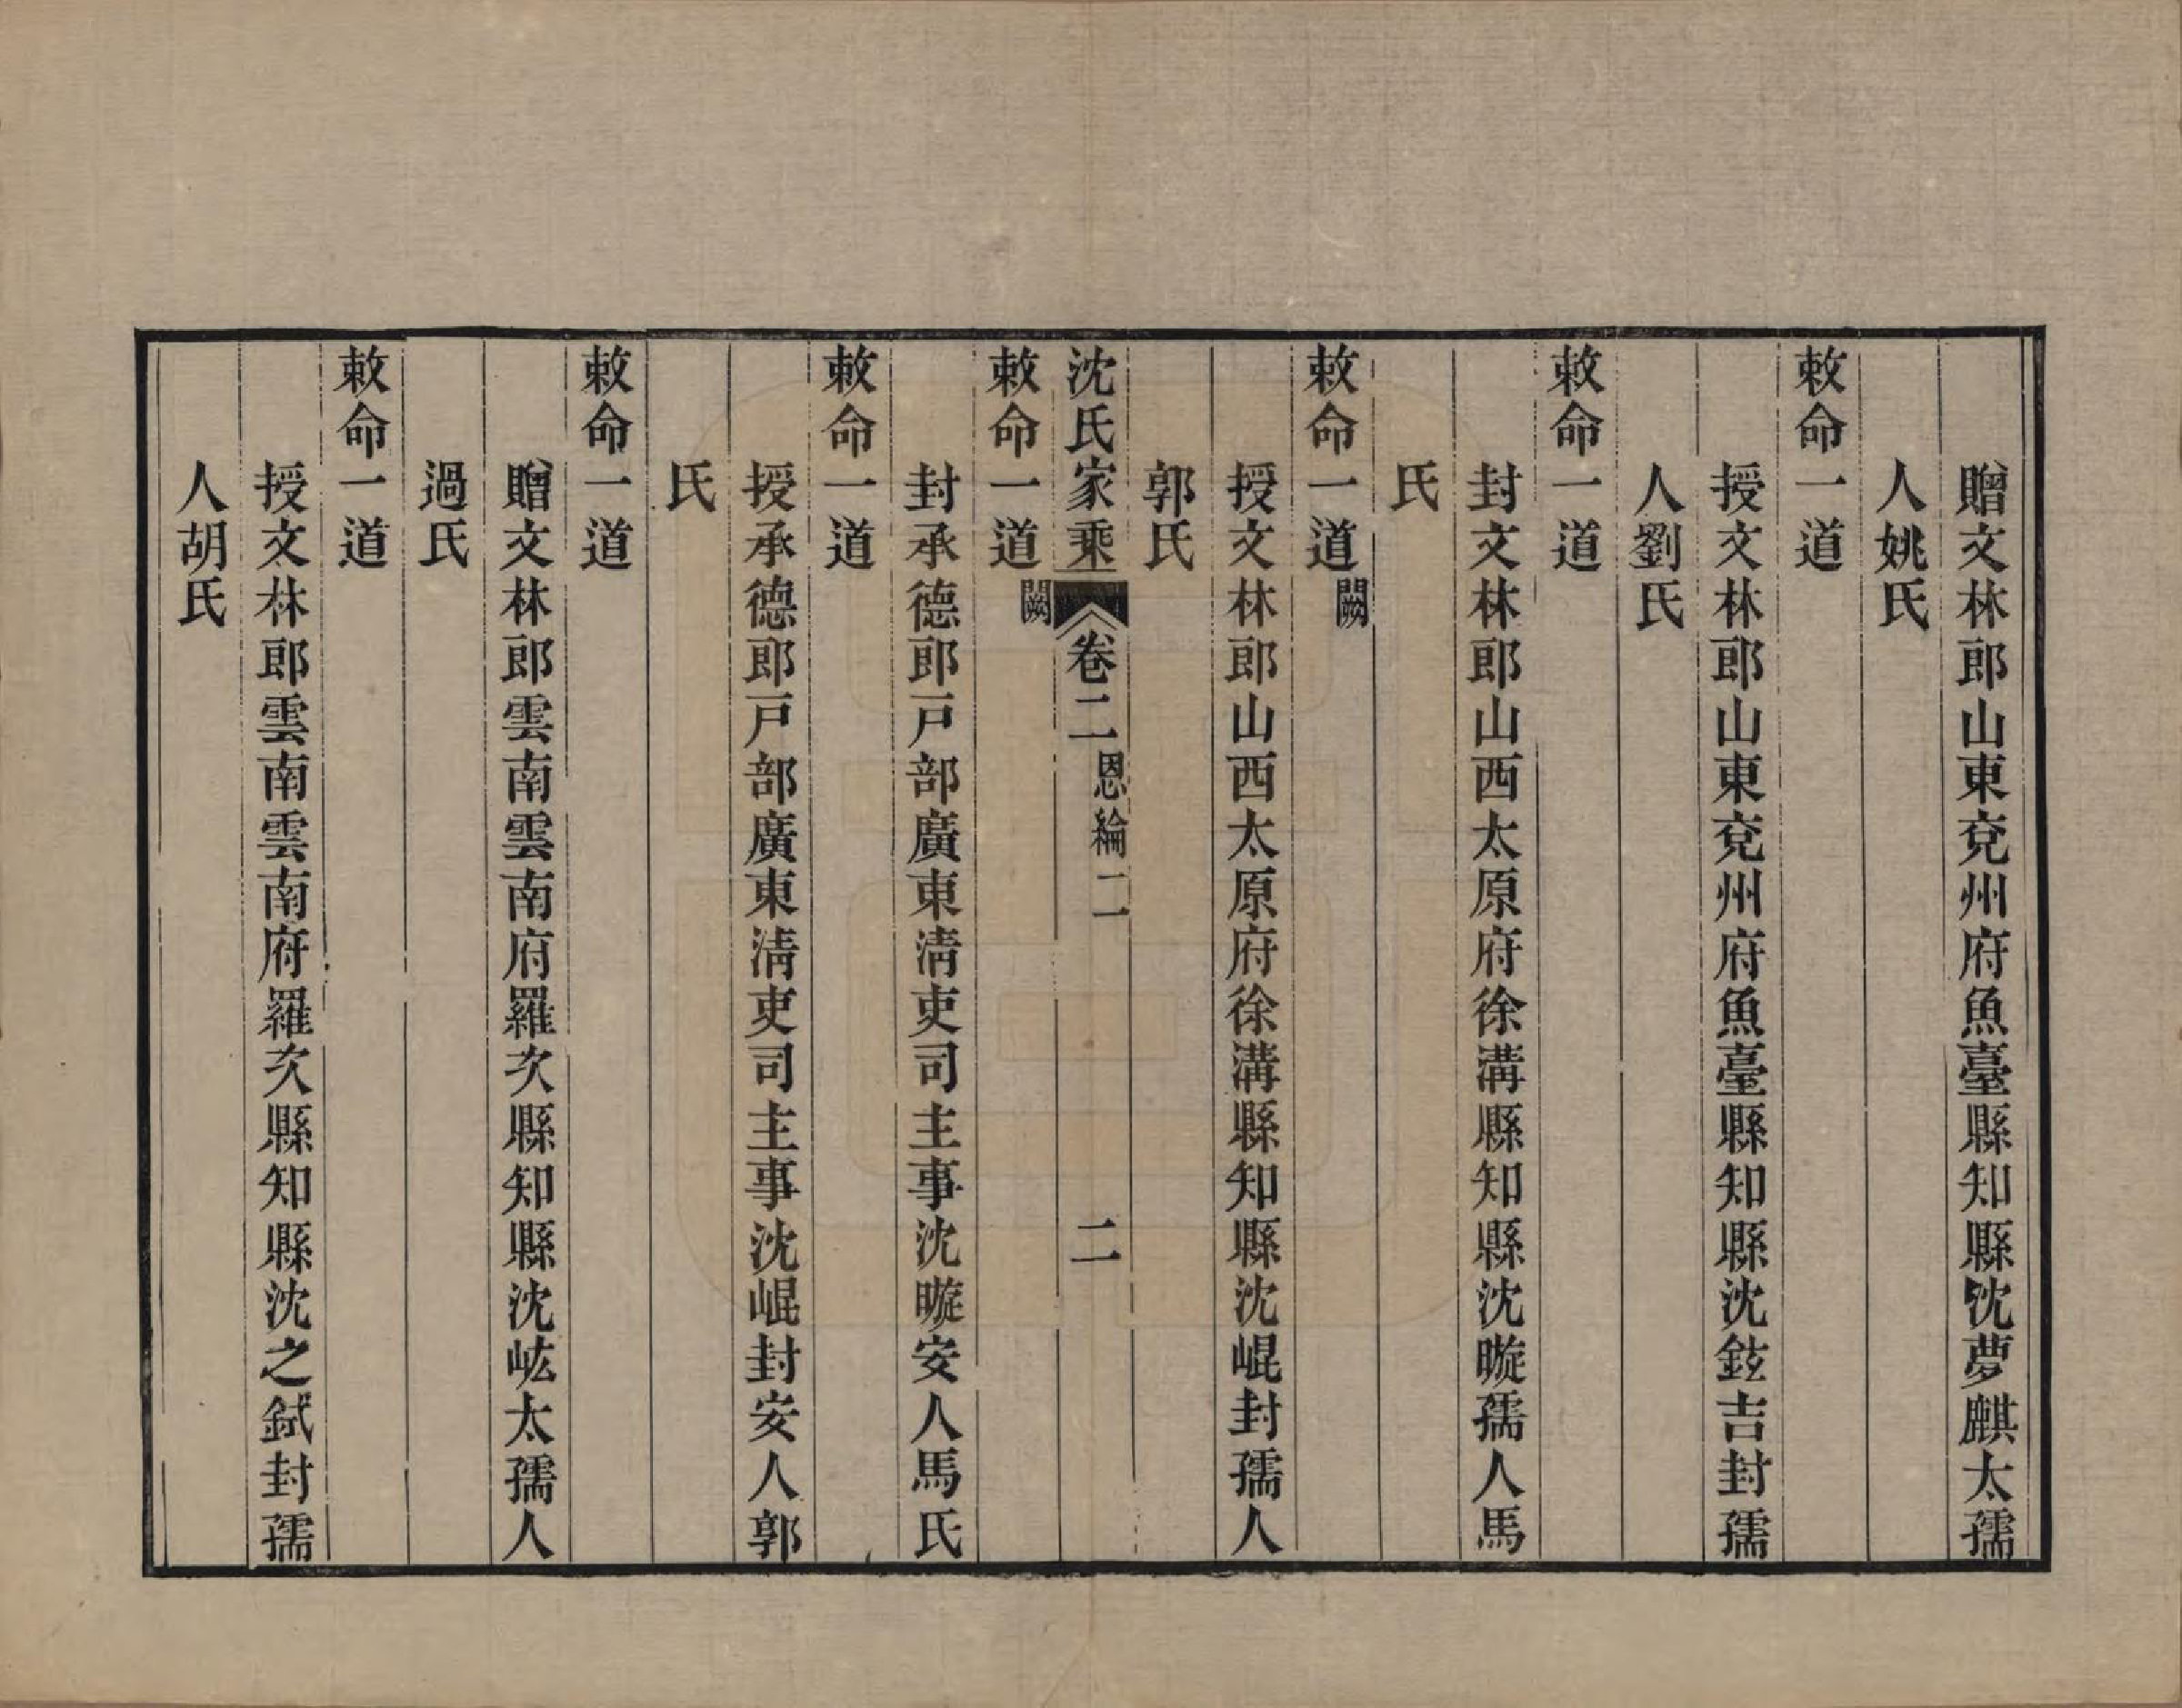 贈文林郎山東兗州府魚臺縣知縣沈夢麒太孺
人姚氏
敕命一道
授文林郎山東兗州府魚臺縣知縣沈鉉吉封孺
人劉氏
敕命一道
封文林郎山西太原府徐溝縣知縣沈暶孺人馬
氏
敕命一道闕
授文林郎山西太原府徐溝縣知縣沈崐封孺人
郭氏
沈氏家乘 卷二 恩綸二 二
敕命一道闕
封承德郎戸部廣東淸吏司主事沈暶安人馬氏
敕命一道
授承德郎戸部廣東淸吏司主事沈崐封安人郭
氏
敕命一道
贈文林郎雲南雲南府羅次縣知縣沈峵太孺人
過氏
敕命一道
授文林郎雲南雲南府羅次縣知縣沈之鉽封孺
人胡氏